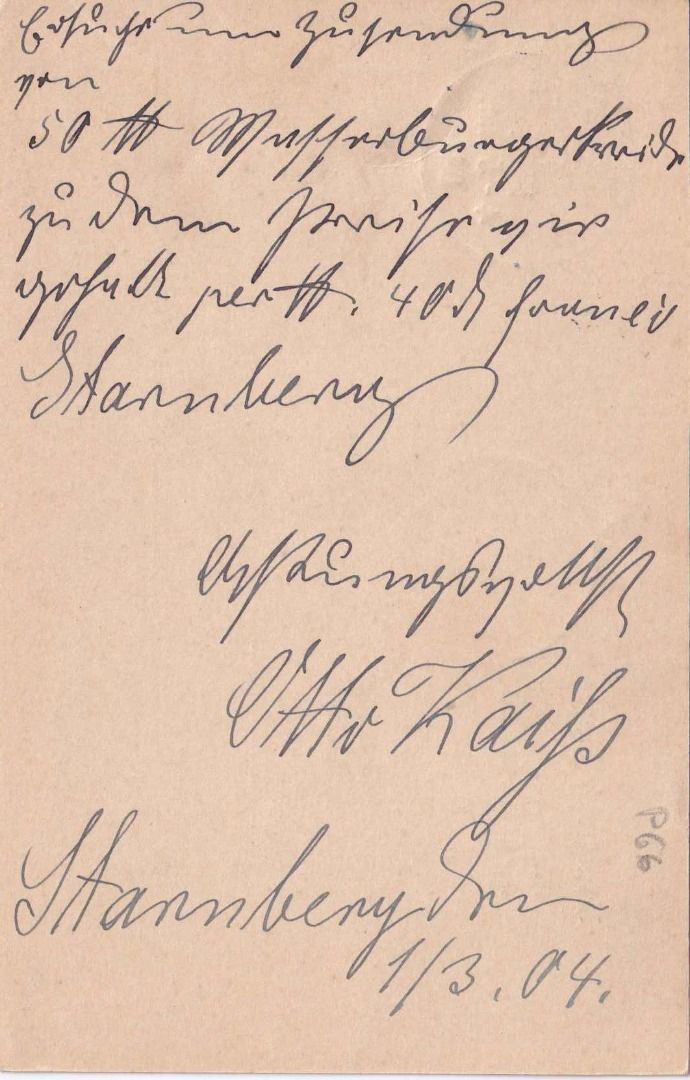 Ersuche um Zusendung
von
50 ℔ Wasserburgerkreide
zu dem Preise wie
gehabt per ℔. 40 ₰ franco
Starnberg
Achtungsvollst
Otto Kaiß
Starnberg den
1/3. 04.
P66